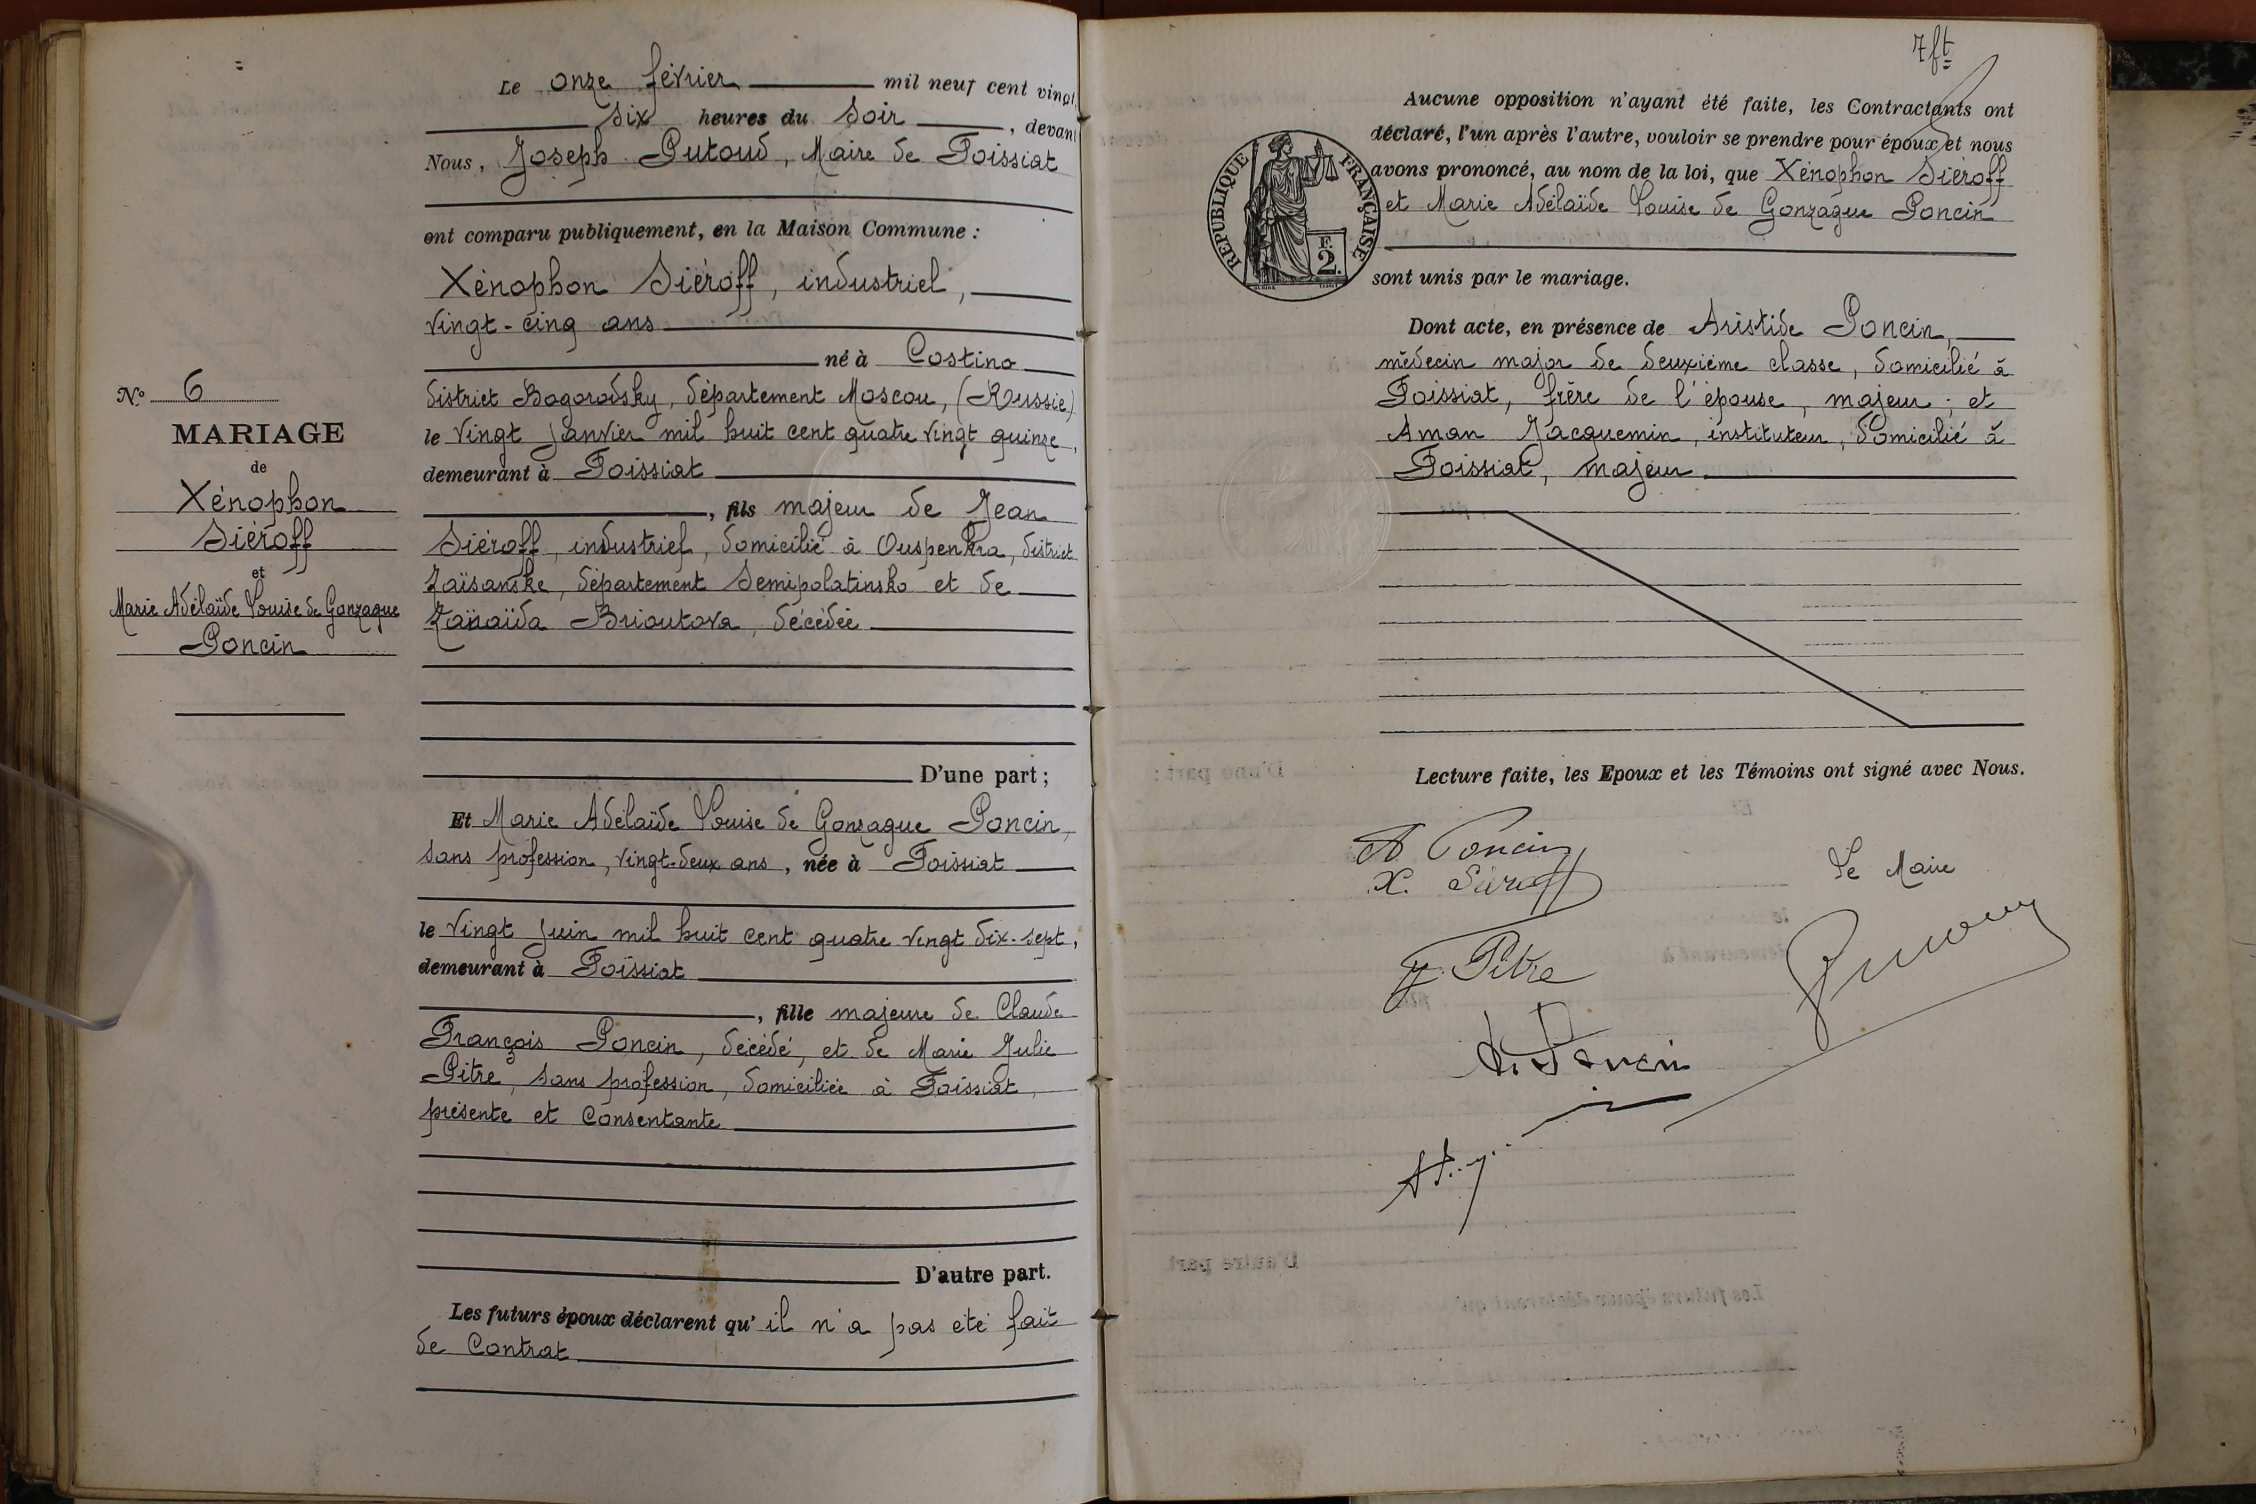 Le onze février mil neuf cent vingt,
six heures du soir, devant
Nous, Joseph Putoud, Maire de Foissiat
ont comparu publiquement, en la Maison Commune :
Xénophon Siéroff, industriel,
vingt-cinq ans
né à Costino
district Bogorodsky, département Moscou, (Russie)
le vingt janvier mil huit cent quatre vingt quinze,
demeurant à Foissiat
, fils majeur de Jean
Siéroff, industriel, domicilié à Ouspenkra, district
Zaïsanske, département Semipolatinsko et de
Zänaïda Brioutova, décédée
D'une part ;
Nº 6
MARIAGE
de
Xénophon
Siéroff
et
Marie Adélaïde Louise de Gonzague
Poncin
Et Marie Adélaïde Louise de Gonzague Poncin,
sans profession, vingt-deux ans, née à Foissiat
le vingt juin mil huit cent quatre vingt dix-sept,
demeurant à Foissiat
, fille majeure de Claude
François Poncin, décédé, et de Marie Julie
Pitre, sans profession, domiciliée à Foissiat,
présente et consentante
D'autre part.
Les futurs époux déclarent qu'il n'a pas été fait
de Contrat
7 ft
Aucune opposition n'ayant été faite, les Contractants ont
déclaré, l'un après l'autre, vouloir se prendre pour époux et nous
avons prononcé, au nom de la loi, que Xénophon Siéroff
et Marie Adélaïde Louise de Gonzague Poncin
sont unis par le mariage.
RÉPUBLIQUE FRANÇAISE
F.
2.
Dont acte, en présence de Aristide Poncin,
médecin major de deuxième classe, domicilié à
Foissiat, frère de l'épouse, majeur ; et
Aman Jacquemin, instituteur, domicilié à
Foissiat, majeur
Lecture faite, les Epoux et les Témoins ont signé avec Nous.
A Poncin
X. Siéroff
Le Maire
J. Pitre
A. Poncin